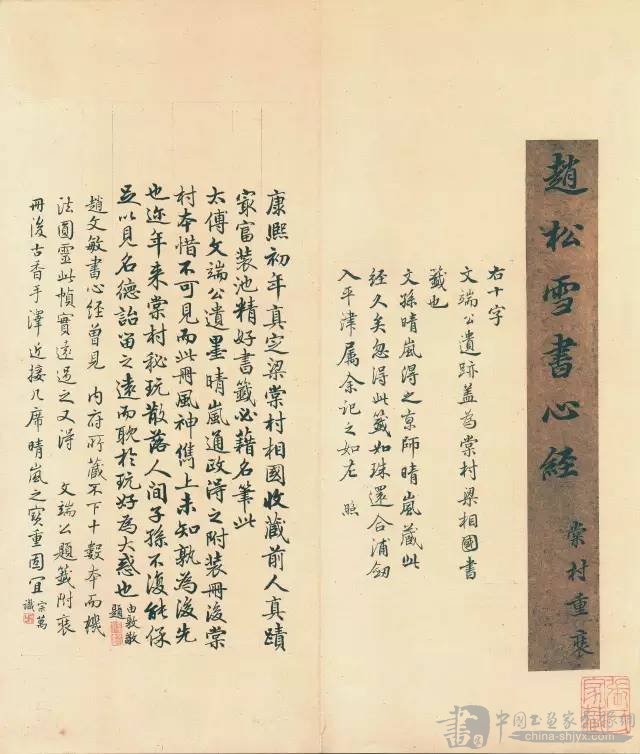 趙松雪書心經
棠村重裝
右十字
文端公遺跡蓋為棠村梁相國書
籤也
文孫晴嵐得之京師晴嵐藏此
經久矣忽得此籤如珠還合浦劒
入平津屬余記之如左 照
康熙初年真定梁棠村相國收藏前人真蹟
家富裝池精好書籤必藉名筆此
太傅文端公遺墨晴嵐通政得之附裝冊後棠
村本惜不可見而此冊風神儁上未知孰為後先
也近年來棠村秘玩散落人間子孫不復能保
足以見名德詒留之遠而耽於玩好為大惑也 由敦敬題
趙文敏書心經曾見 內府所藏不下十數本而機
法圓靈此幀實遠過之又得 文端公題籤附裝
冊後古香手澤近接几席晴嵐之寶重固宜 宗萬識
中國書畫家
china-shjyx.com